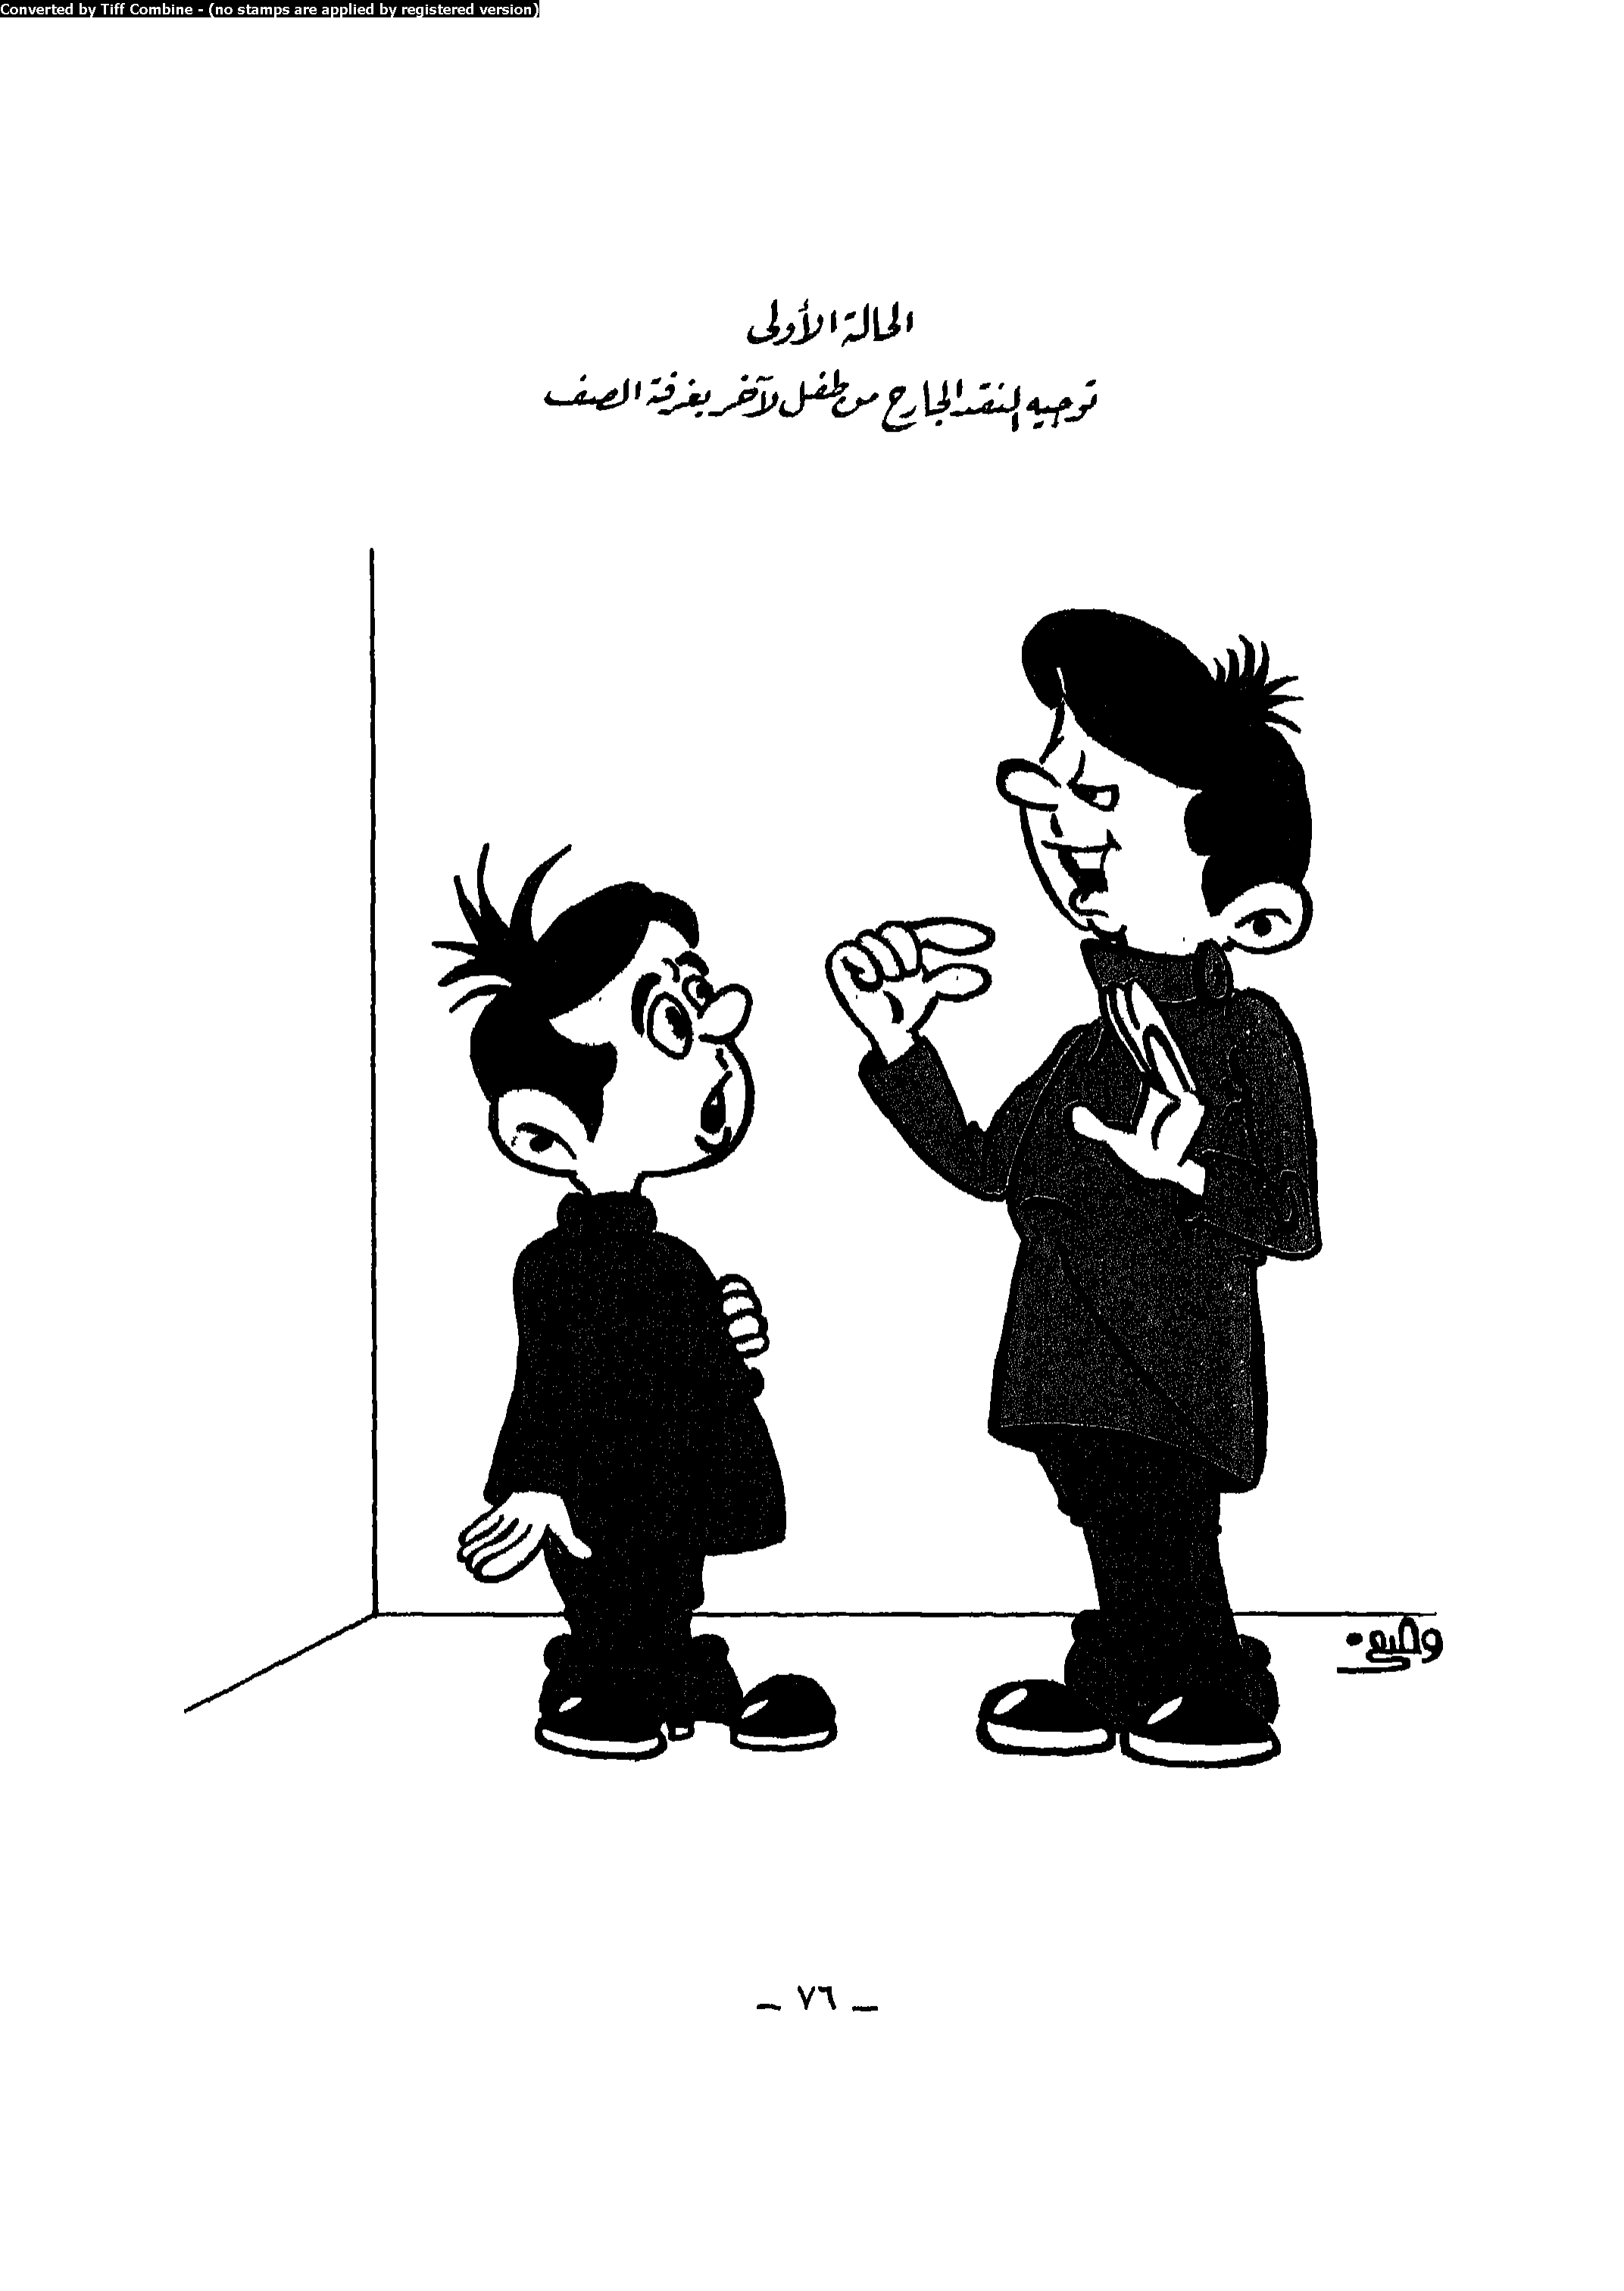 Converted by Tiff Combine - (no stamps are applied by registered version)
الحالة الأولى
توجيه النقد الجارح من طفل لآخر بغرفة الصف
_ ٧٦ _